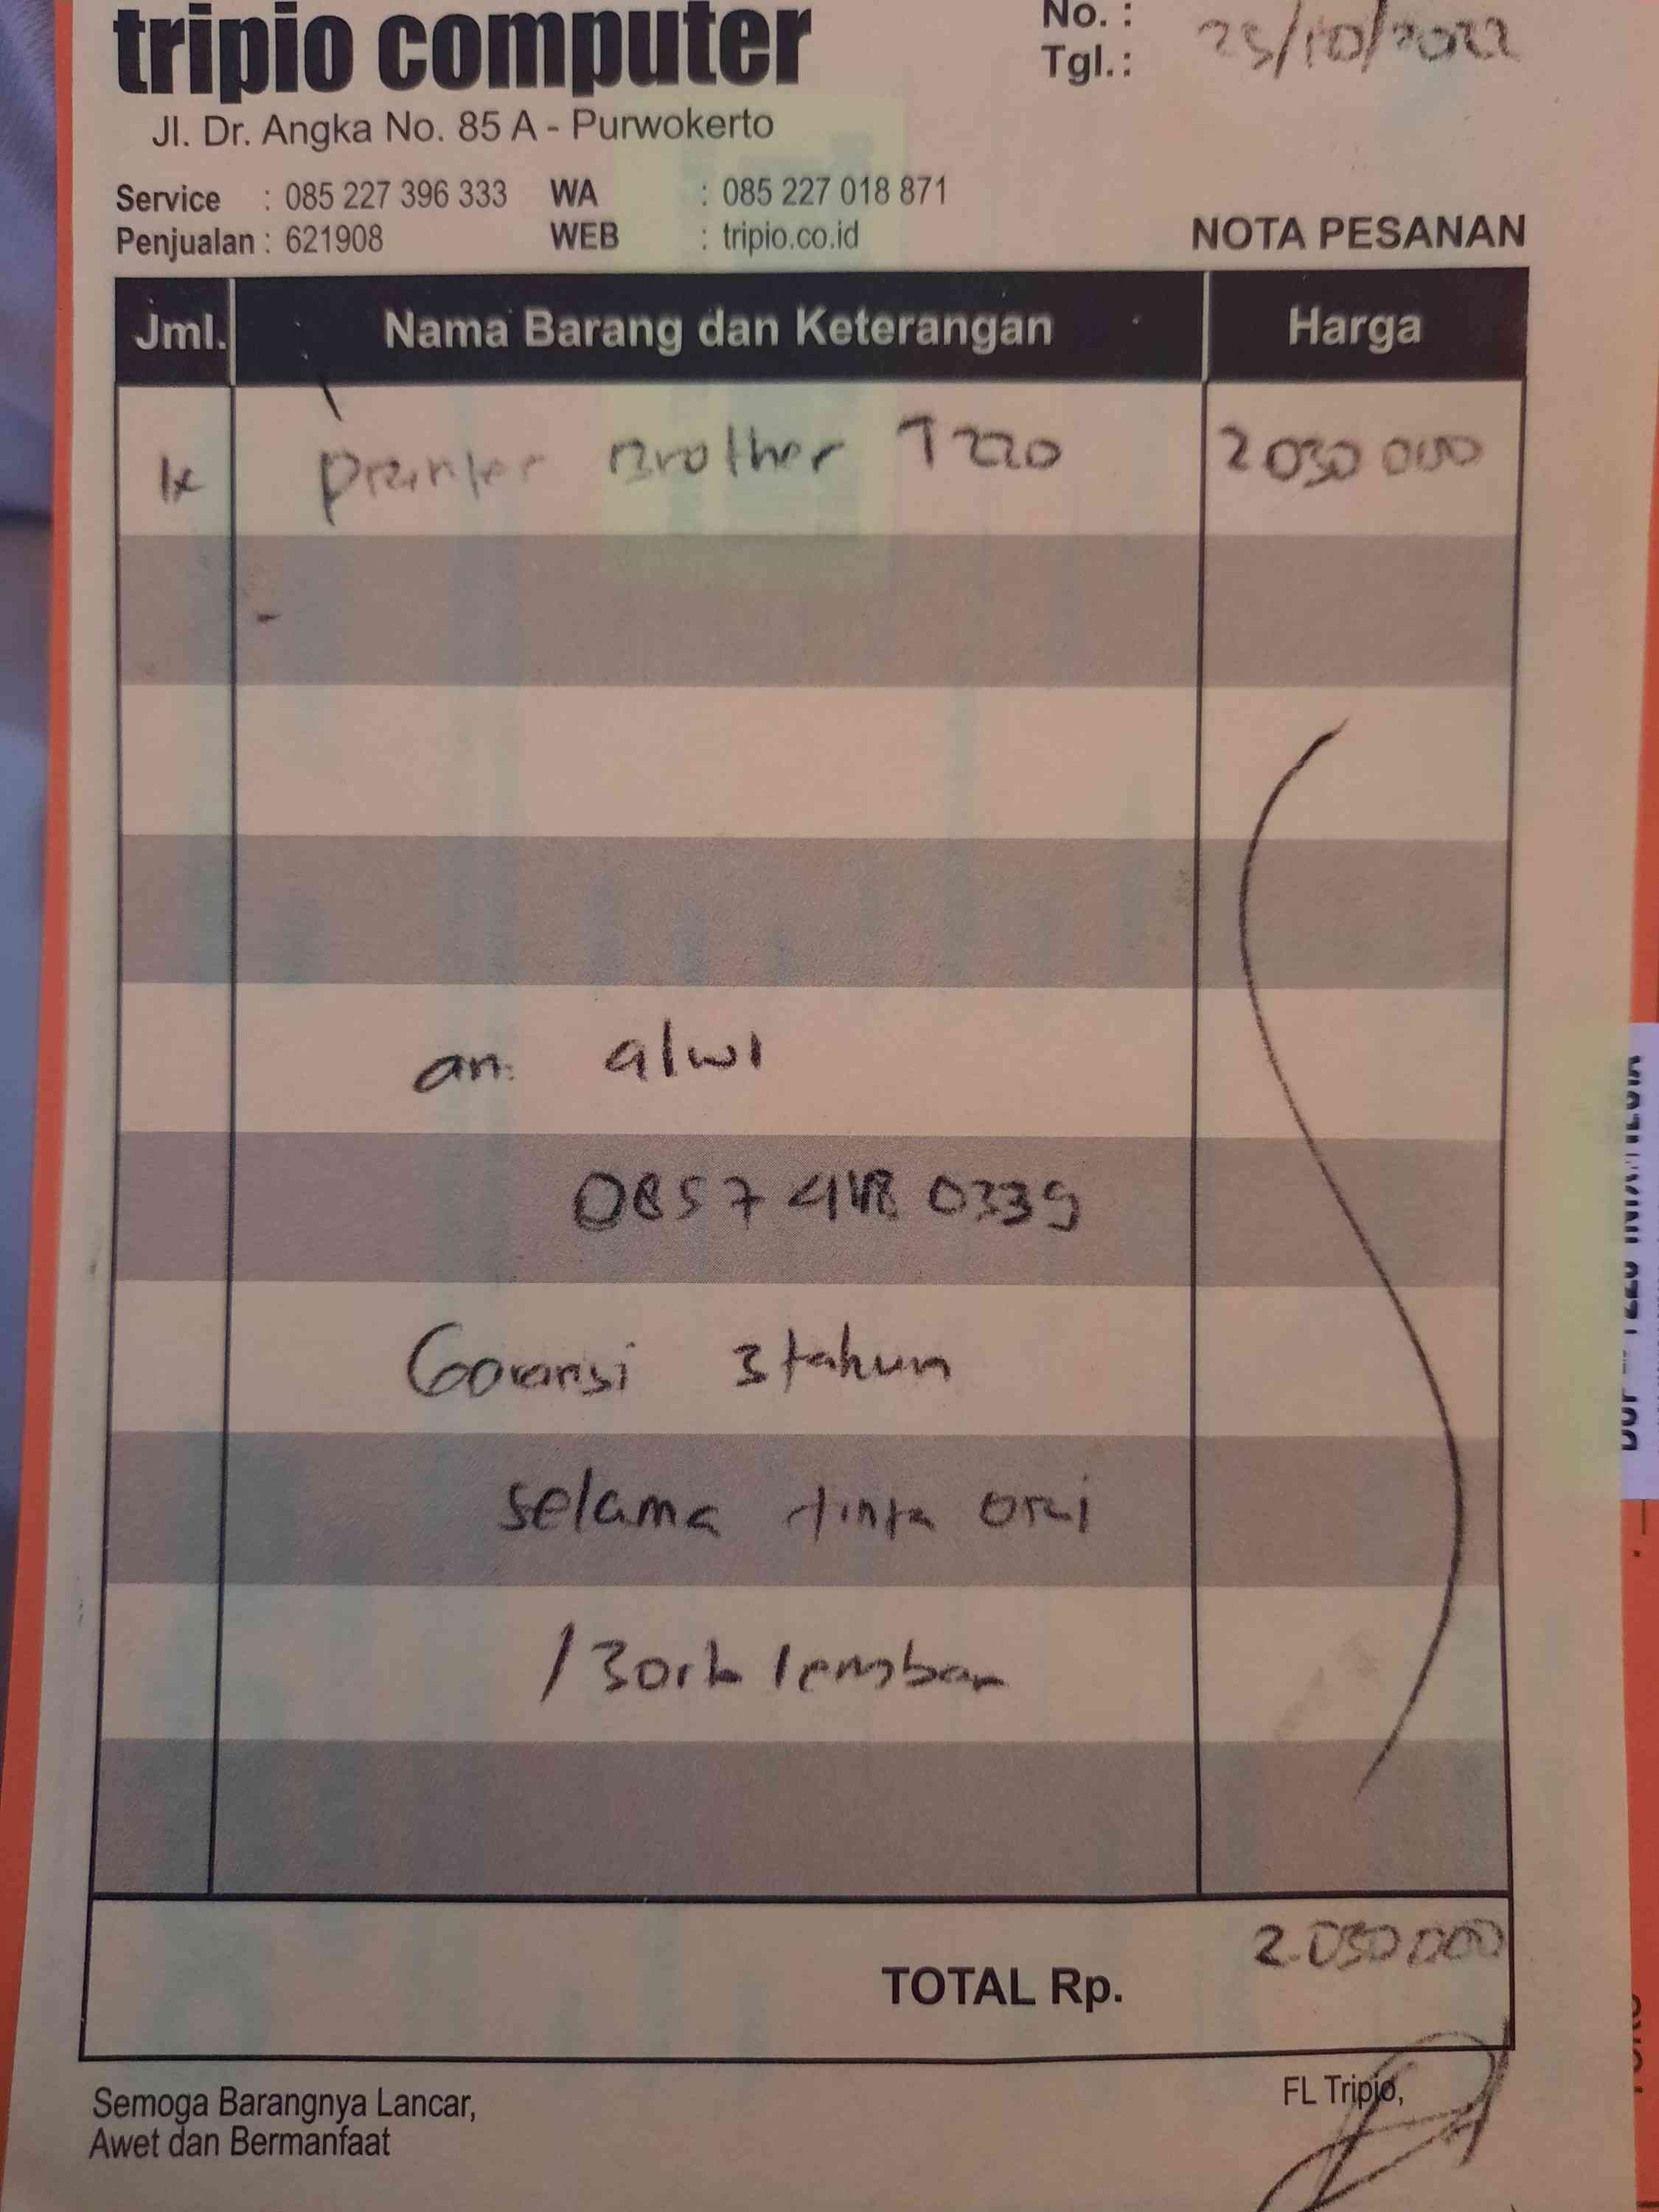 tripio computer
No. :
Tgl.: 25/10/2022
Jl. Dr. Angka No. 85 A - Purwokerto
Service : 085 227 396 333 WA : 085 227 018 871
Penjualan : 621908 WEB : tripio.co.id
NOTA PESANAN
Jml. Nama Barang dan Keterangan Harga
1x Printer Brother T220 2030 000
an. alwi
0857 4118 0339
Garansi 3 tahun
selama tinta ori
/ 30rb lembar
TOTAL Rp. 2.030 000
Semoga Barangnya Lancar,
Awet dan Bermanfaat
FL Tripio,